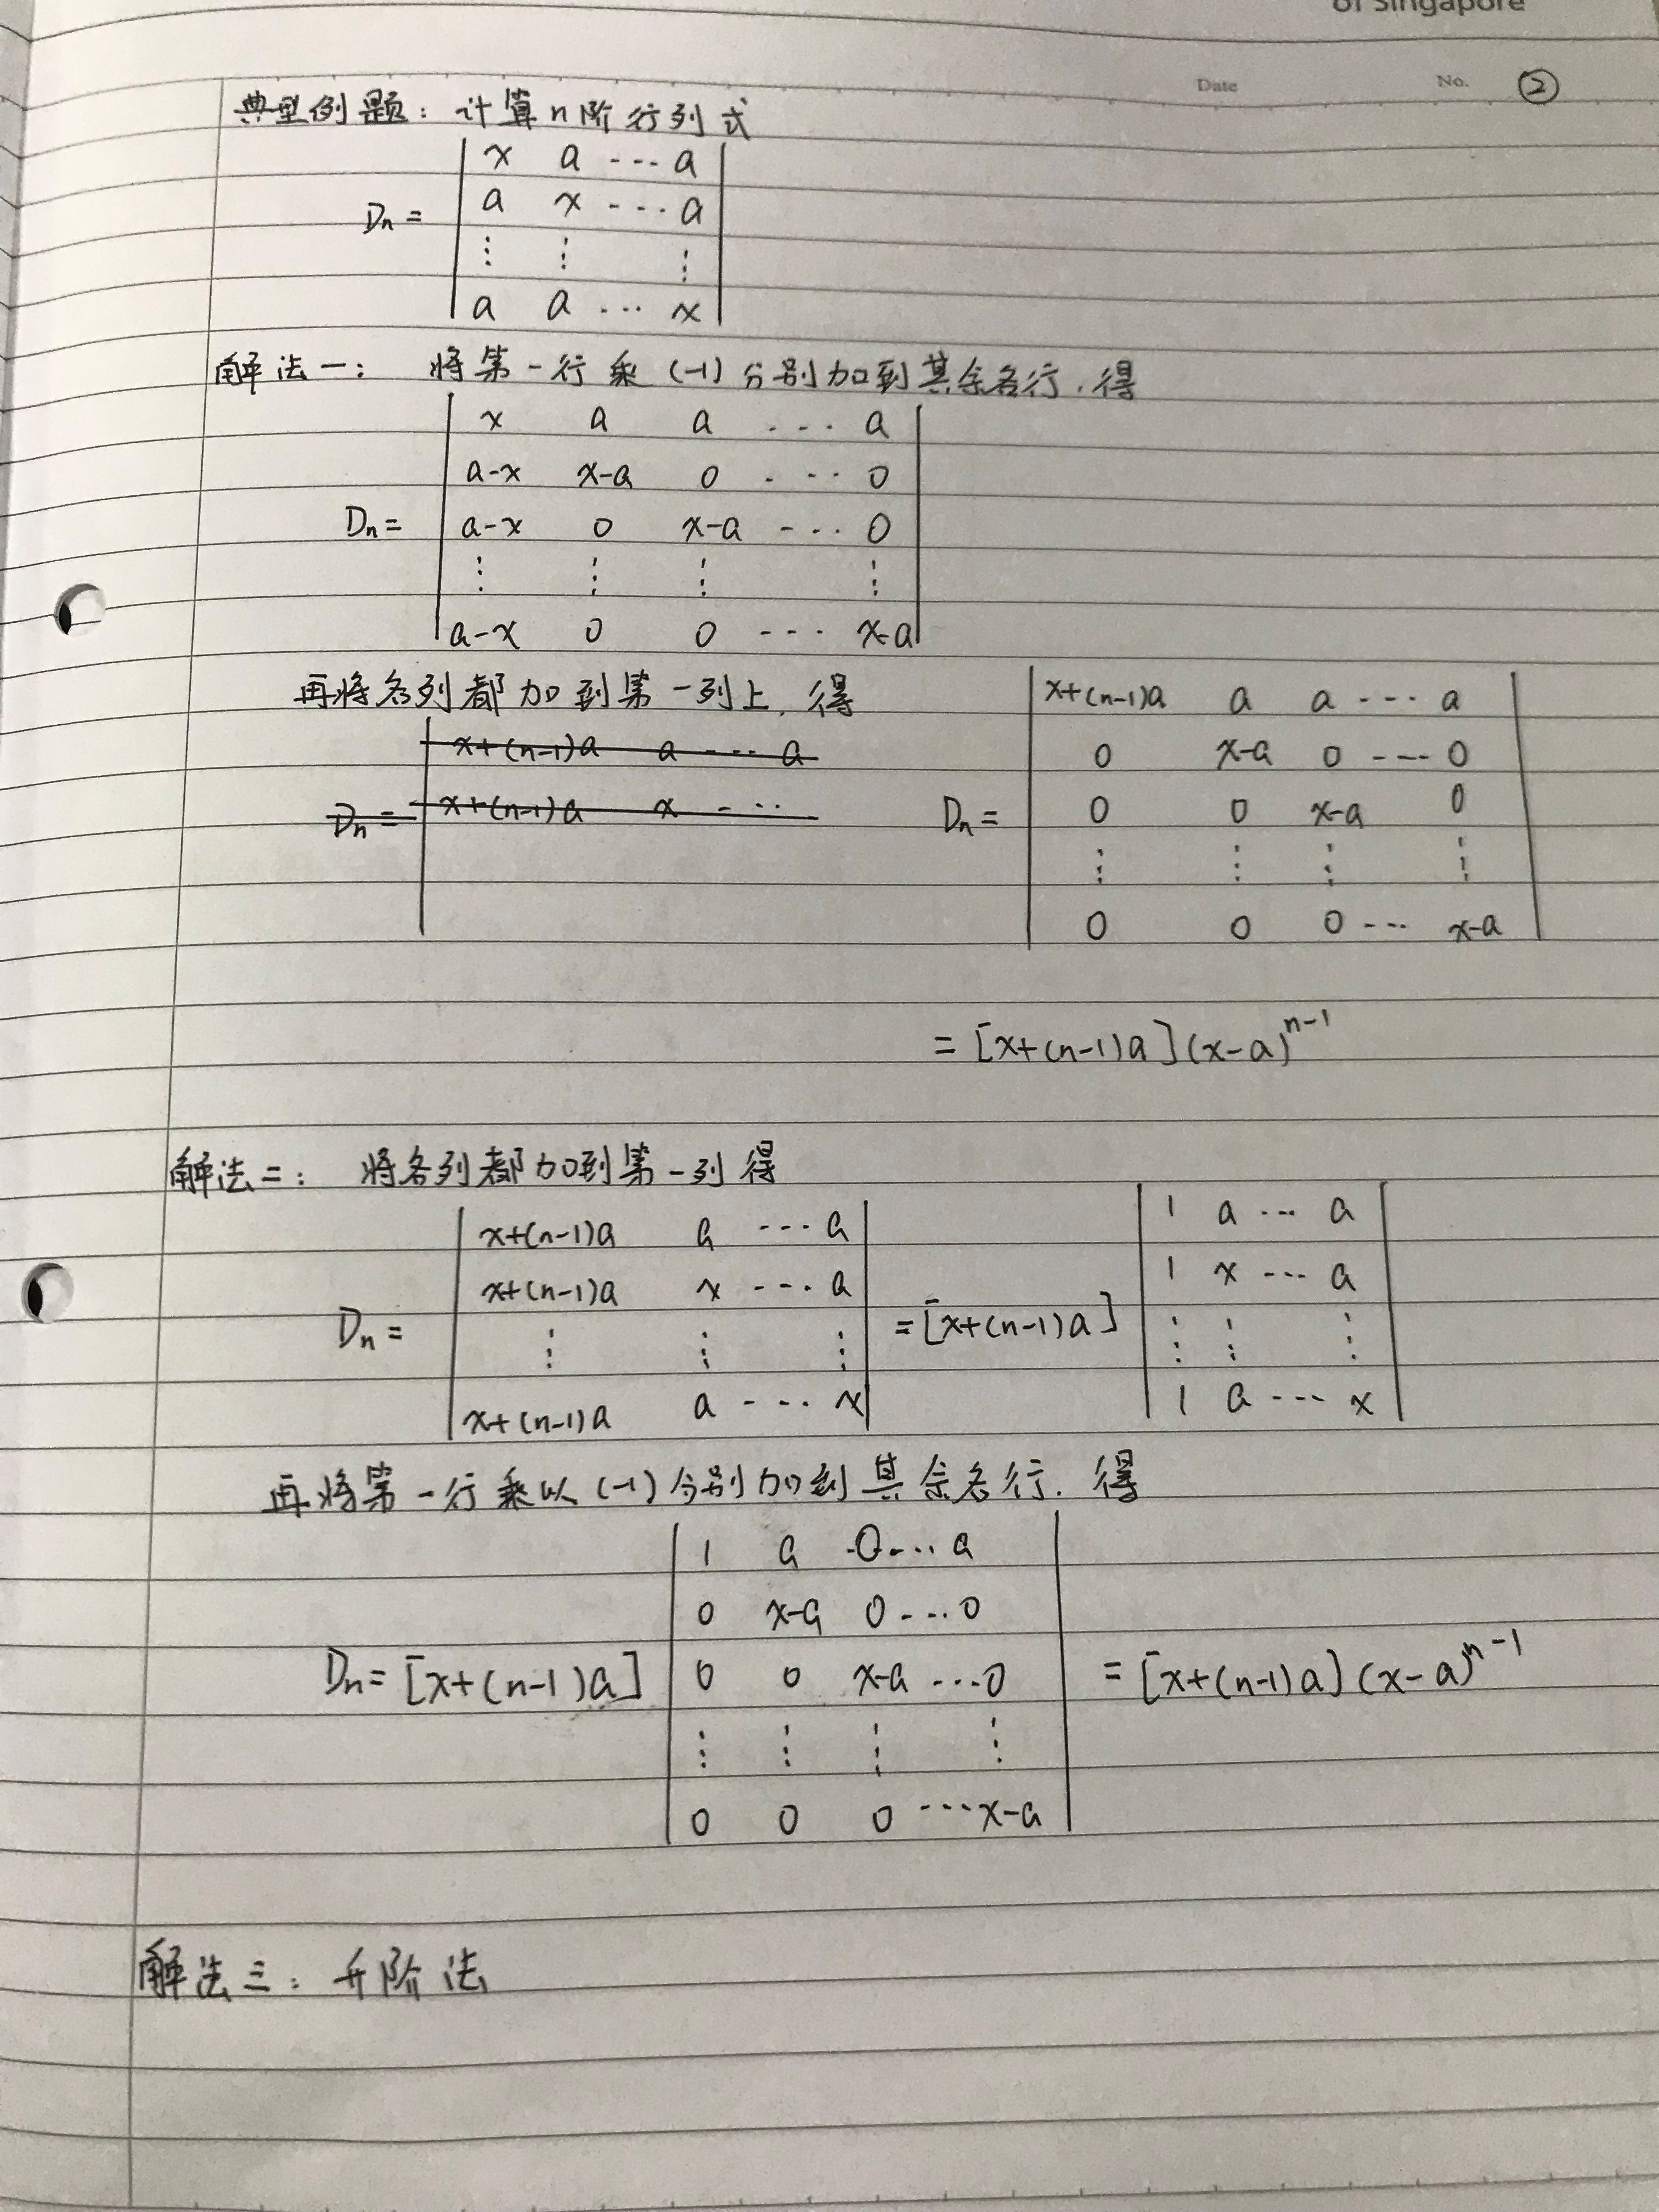 of Singapore
Date No. ②
典型例题：计算n阶行列式
x a ··· a
a x ··· a
Dn =
⋮ ⋮ ⋮
a a ··· x
解法一： 将第一行乘(-1)分别加到其余各行，得
x a a ··· a
a-x x-a 0 ··· 0
Dn = a-x 0 x-a ··· 0
⋮ ⋮ ⋮ ⋮
a-x 0 0 ··· x-a
再将各列都加到第一列上，得
x+(n-1)a a ··· a
Dn = x+(n-1)a x ···
x+(n-1)a a a ··· a
0 x-a 0 ··· 0
Dn = 0 0 x-a 0
⋮ ⋮ ⋮ ⋮
0 0 0 ··· x-a
= [x+(n-1)a](x-a)^{n-1}
解法二： 将各列都加到第一列得
x+(n-1)a a ··· a
x+(n-1)a x ··· a
Dn =
⋮ ⋮ ⋮
x+(n-1)a a ··· x
= [x+(n-1)a]
1 a ··· a
1 x ··· a
⋮ ⋮ ⋮
1 a ··· x
再将第一行乘以(-1)分别加到其余各行，得
1 a 0 ··· a
0 x-a 0 ··· 0
Dn = [x+(n-1)a] 0 0 x-a ··· 0 = [x+(n-1)a](x-a)^{n-1}
⋮ ⋮ ⋮ ⋮
0 0 0 ··· x-a
解法三：升阶法